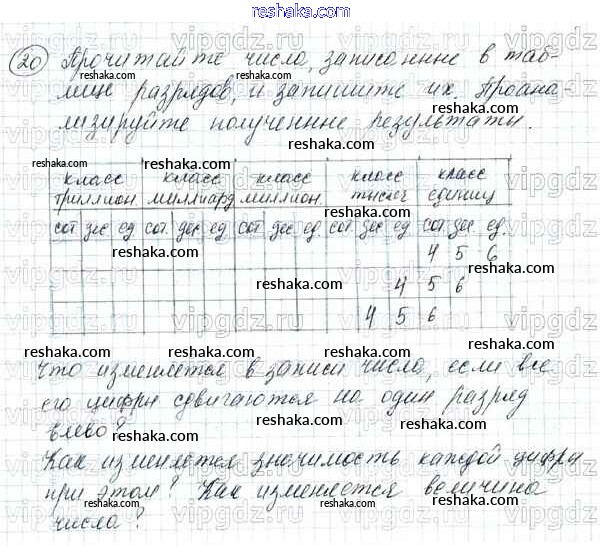 reshaka.com
20 Прочитайте числа, записанные в таб-
лице разрядов, и запишите их. Проана-
лизируйте полученные результаты.
класс триллион класс миллиард класс миллион класс тысяч класс единиц
сот дес ед сот дес ед сот дес ед сот дес ед сот дес ед.
4 5 6
4 5 6
4 5 6
Что изменяется в записи числа, если все
его цифры сдвигаются на один разряд
влево?
Как изменяется значимость каждой цифры
при этом? Как изменяется величина
числа?